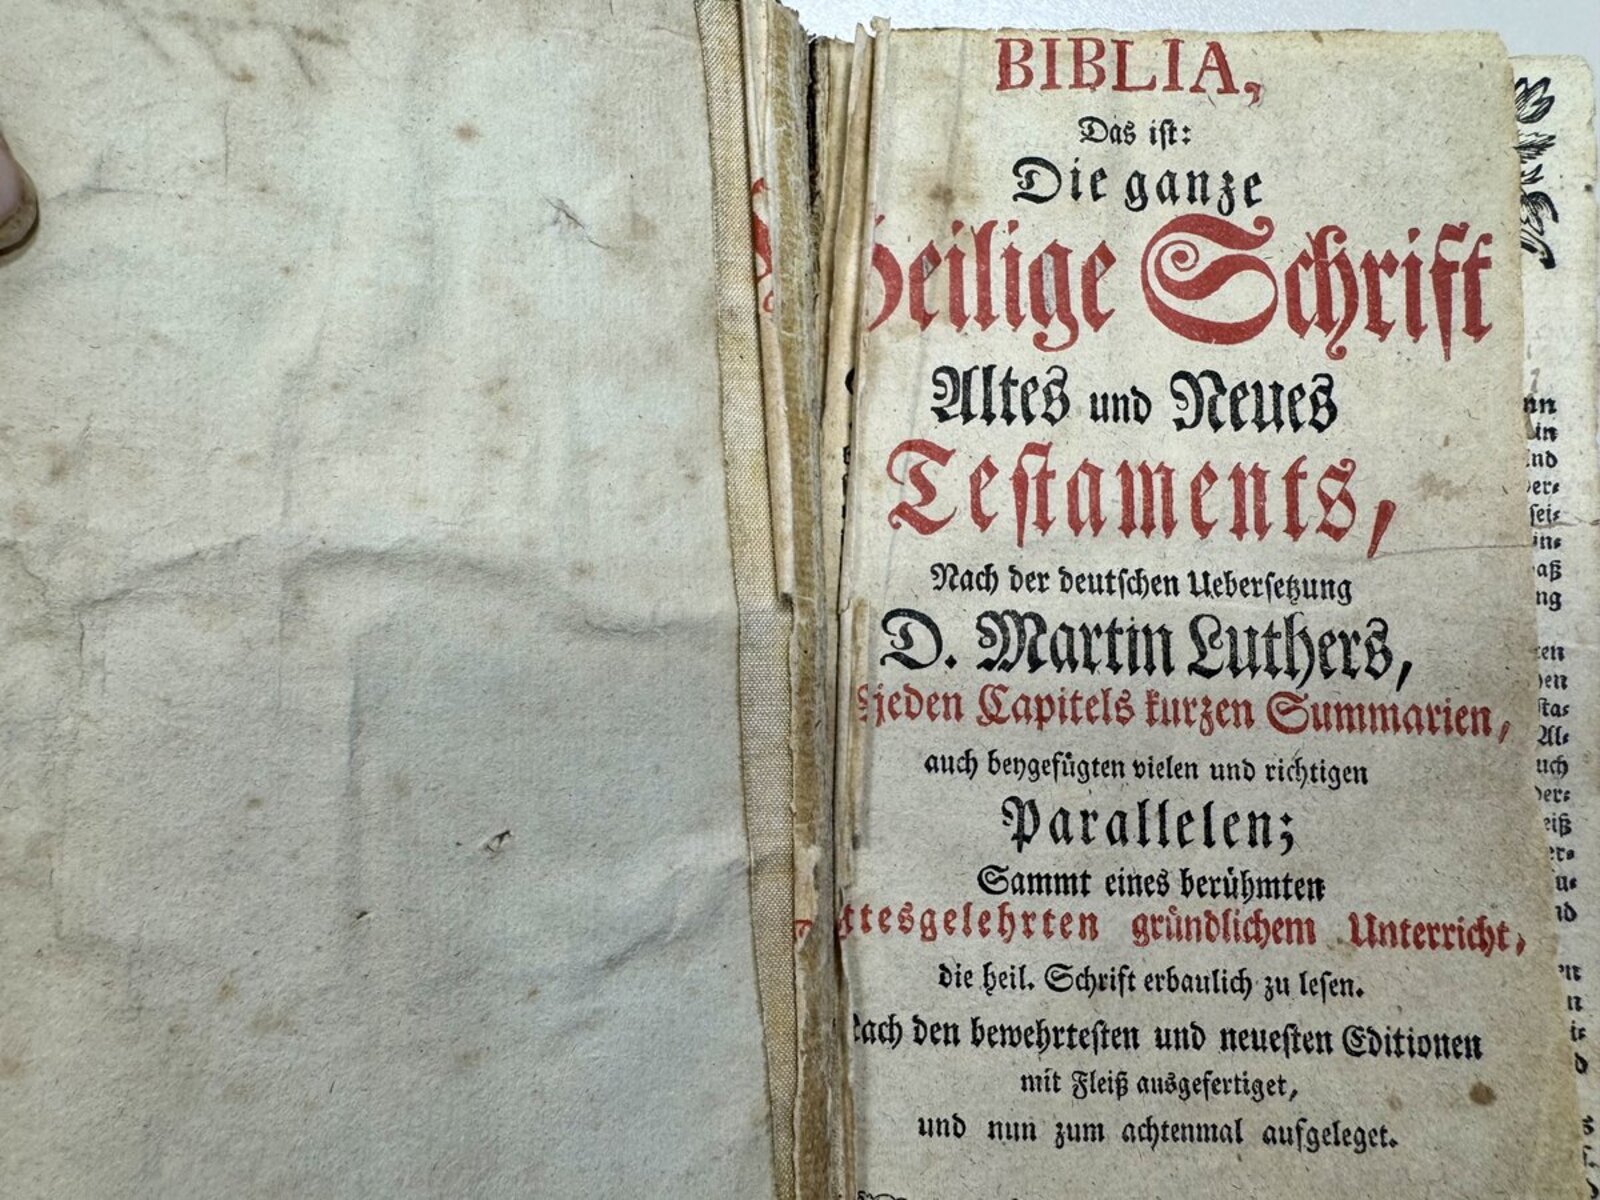 BIBLIA,
Das iſt:
Die ganze
Heilige Schrift
Altes und Neues
Teſtaments,
Nach der deutſchen Ueberſetzung
D. Martin Luthers,
jeden Capitels kurzen Summarien,
auch beygefügten vielen und richtigen
Parallelen;
Sammt eines berühmten
Gottesgelehrten gründlichem Unterricht,
die heil. Schrift erbaulich zu leſen.
Nach den bewehrteſten und neueſten Editionen
mit Fleiß ausgefertiget,
und nun zum achtenmal aufgeleget.